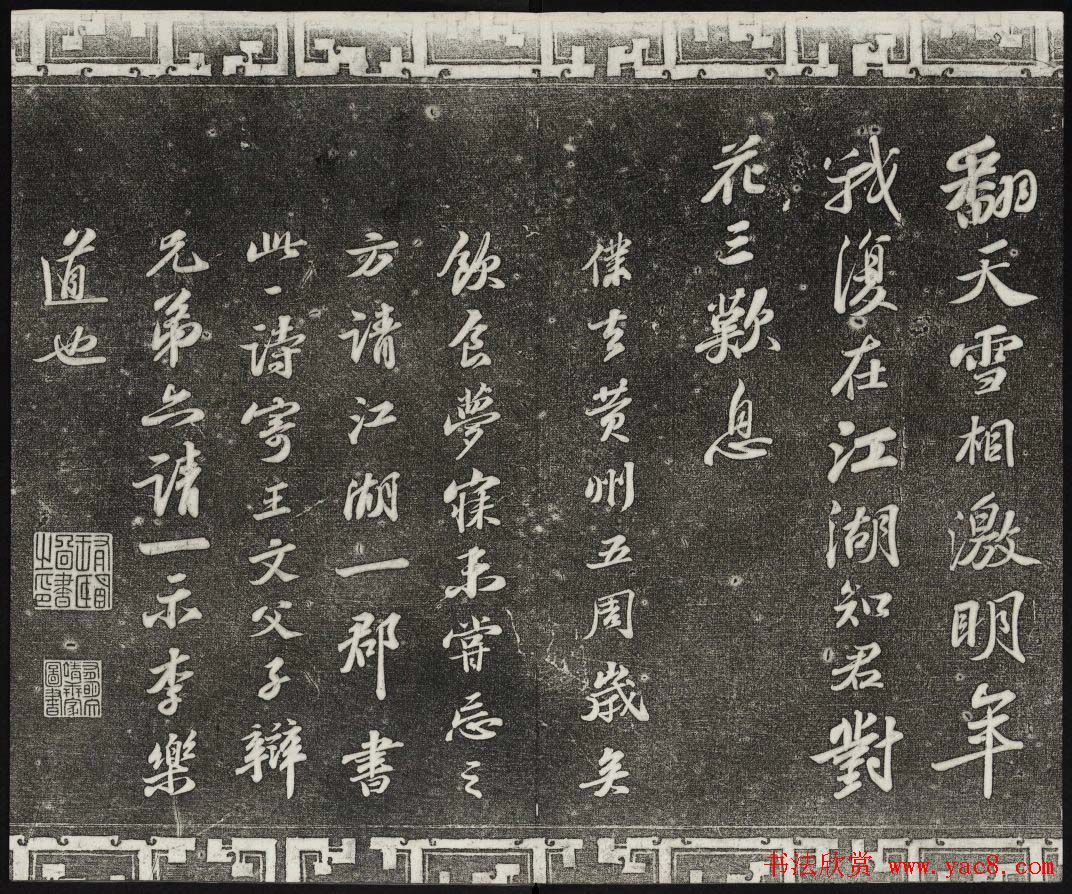 翻天雪相激明年
我復在江湖知君對
花三歎息
僕去黄州五周歲矣
飲食夢寐未嘗忘之
方請江湖一郡書
此一詩寄王文父子辯
兄弟亦請一示李樂
道也
书法欣赏 www.yac8.com